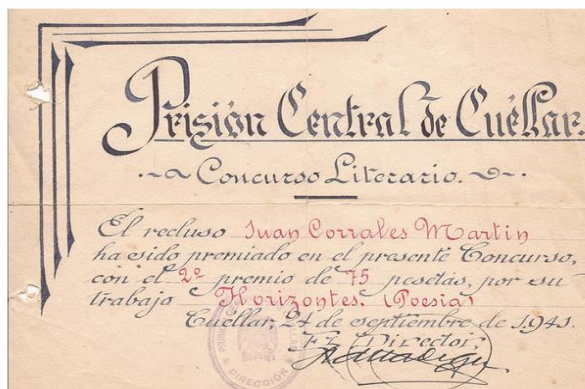 Prisión Central de Cuéllar.
Concurso Literario.
El recluso Juan Corrales Martin
ha sido premiado en el presente Concurso,
con el 2º premio de 75 pesetas, por su
trabajo Horizontes. (Poesia)
Cuéllar, 24 de septiembre de 1.943.
El Director,
DIRECCIÓN